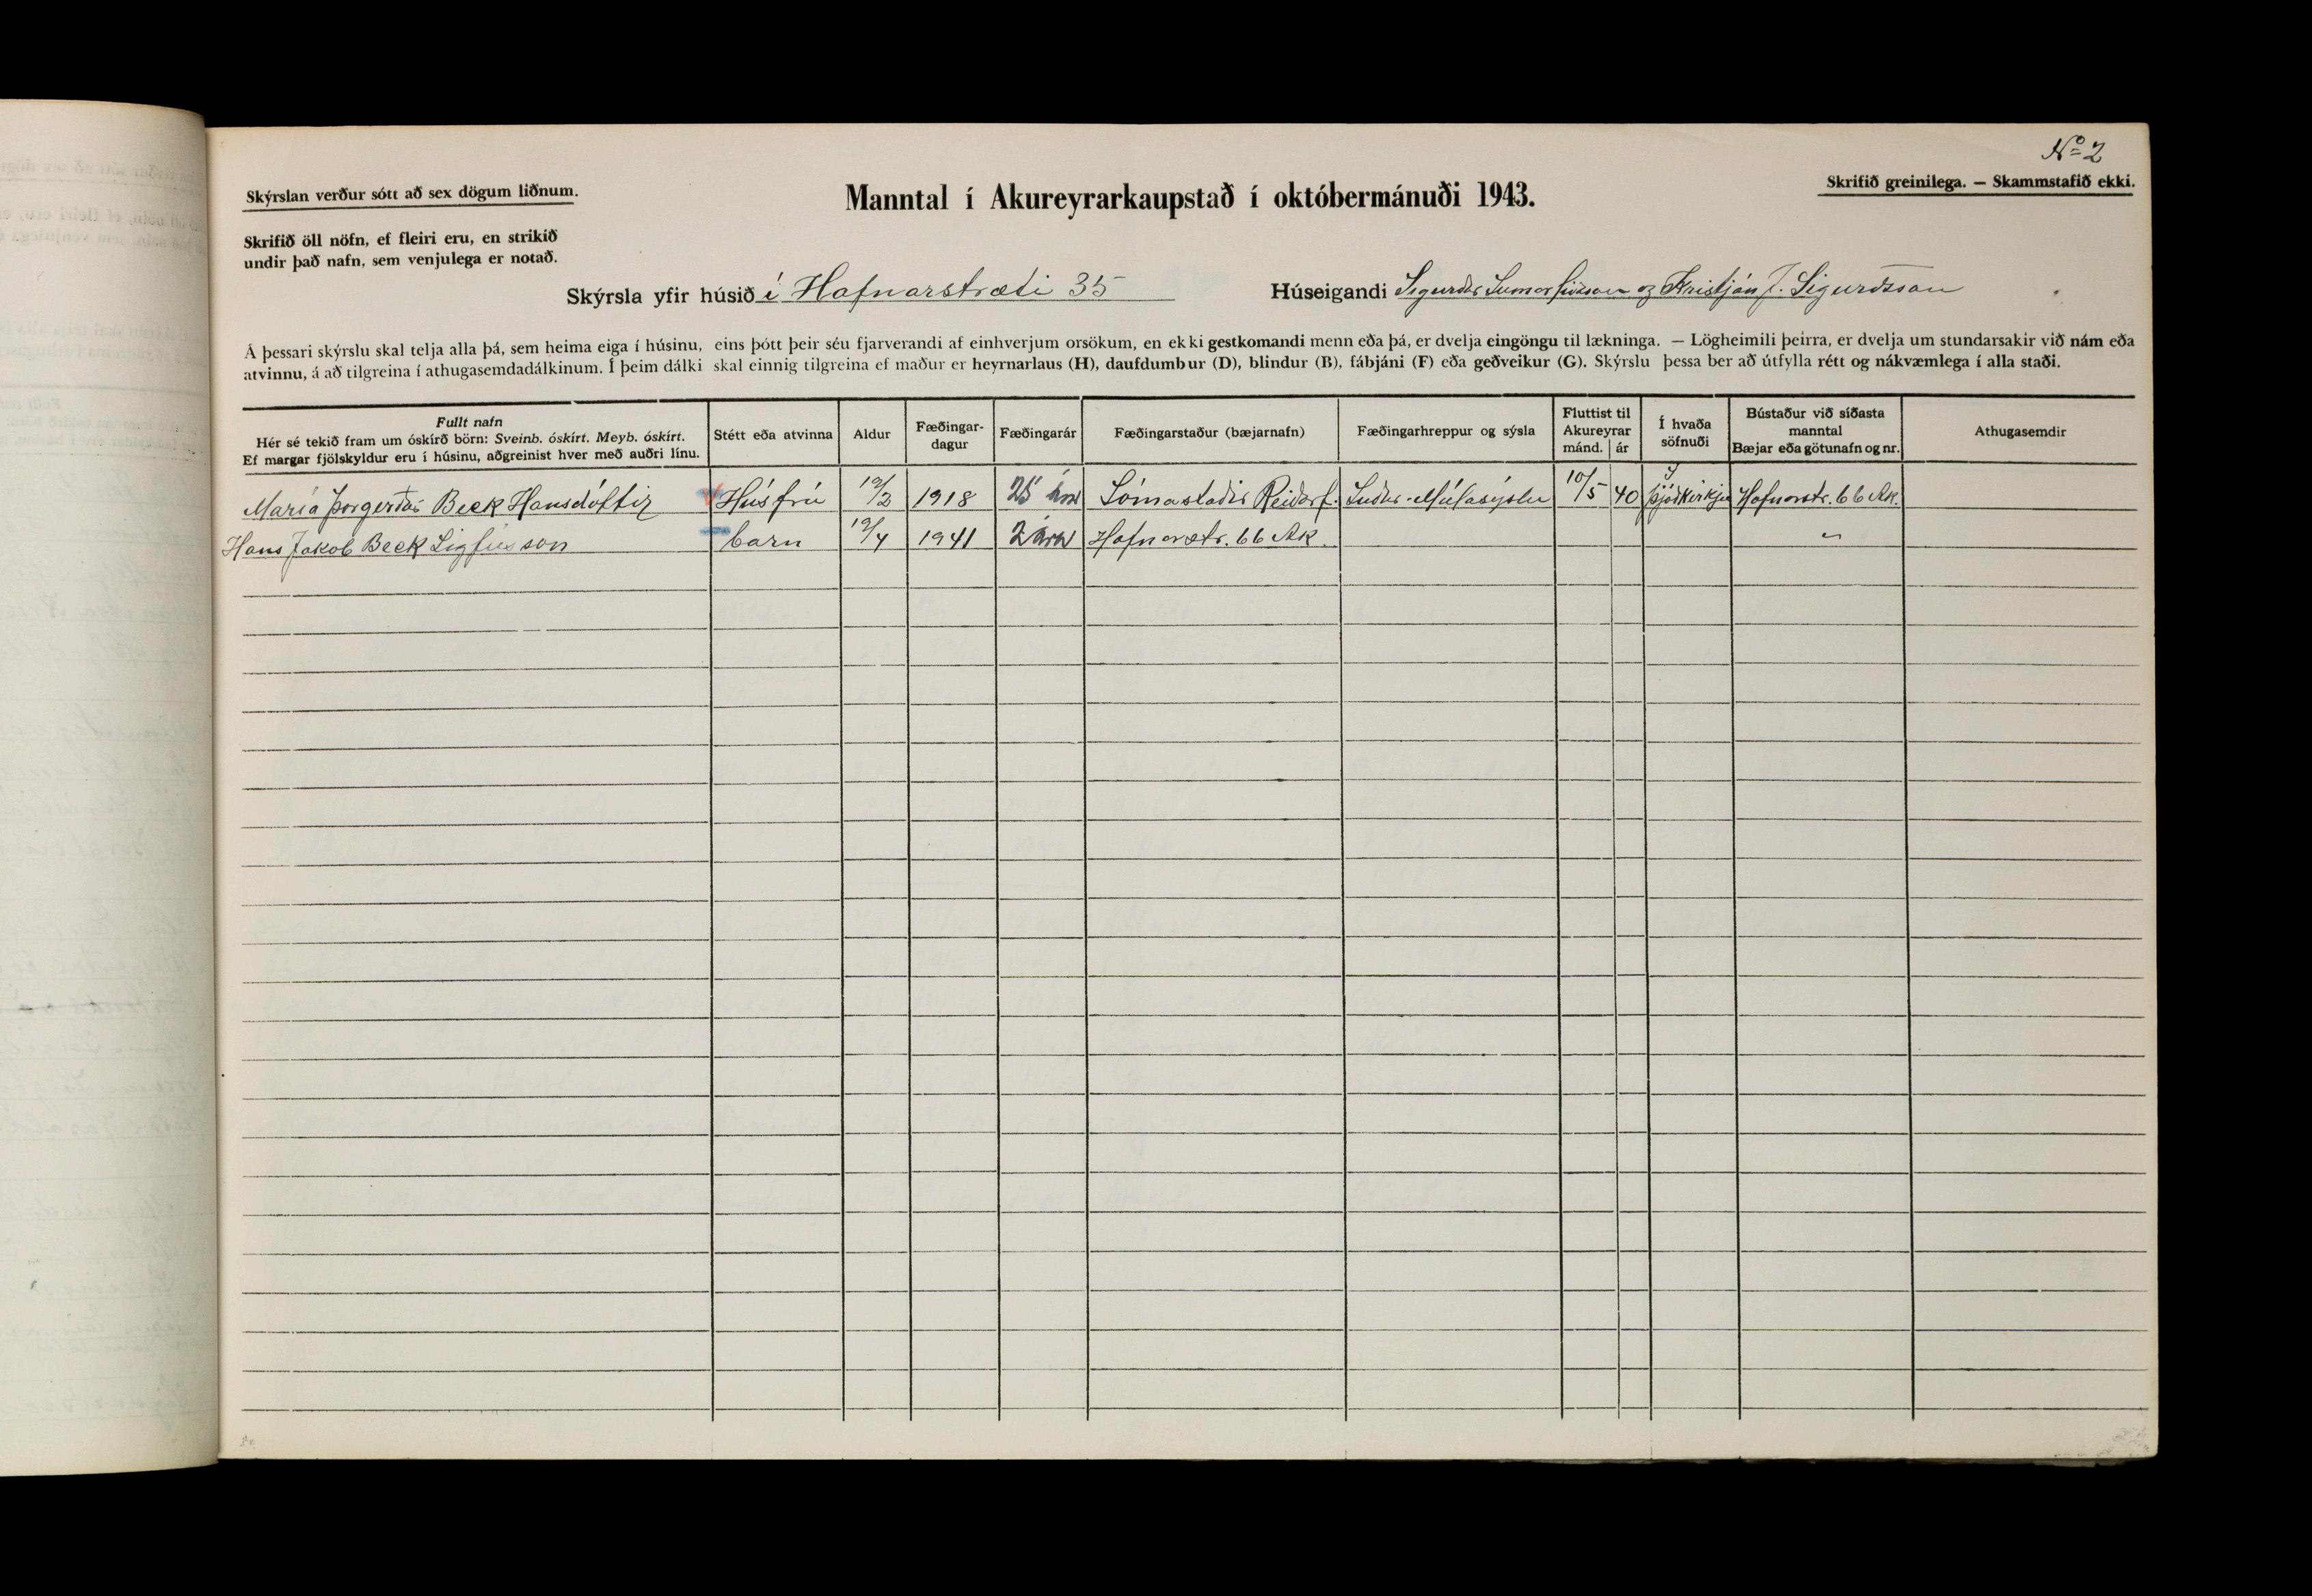 Nº 2
Skýrslan verður sótt að sex dögum liðnum.
Manntal í Akureyrarkaupstað í októbermánuði 1943.
Skrifið greinilega. — Skammstafið ekki.
Skrifið öll nöfn, ef fleiri eru, en strikið
undir það nafn, sem venjulega er notað.
Skýrsla yfir húsið í Hafnarstræti 35
Húseigandi Sigurður Sumarliðason og Kristján J. Sigurðsson
Á þessari skýrslu skal telja alla þá, sem heima eiga í húsinu, eins þótt þeir séu fjarverandi af einhverjum orsökum, en ekki gestkomandi menn eða þá, er dvelja eingöngu til lækninga. — Lögheimili þeirra, er dvelja um stundarsakir við nám eða
atvinnu, á að tilgreina í athugasemdadálkinum. Í þeim dálki skal einnig tilgreina ef maður er heyrnarlaus (H), daufdumbur (D), blindur (B), fábjáni (F) eða geðveikur (G). Skýrslu þessa ber að útfylla rétt og nákvæmlega í alla staði.
Fullt nafn
Hér sé tekið fram um óskírð börn: Sveinb. óskírt. Meyb. óskírt.
Ef margar fjölskyldur eru í húsinu, aðgreinist hver með auðri línu.
Stétt eða atvinna
Aldur
Fæðingar-
dagur
Fæðingarár
Fæðingarstaður (bæjarnafn)
Fæðingarhreppur og sýsla
Fluttist til
Akureyrar
mánd. ár
Í hvaða
söfnuði
Bústaður við síðasta
manntal
Bæjar eða götunafn og nr.
Athugasemdir
María Þorgerður Beck Hansdóttir Húsfrú 19/2 1918 25 ára Sómastaðir Reiðarf. Suður-Múlasýslu 10/5 40 Þjóðkirkju Hafnarstr. 66 Ak.
Hans Jakob Beck Sigfússon barn 19/4 1941 2 ára Hafnarstr. 66 Ak. "